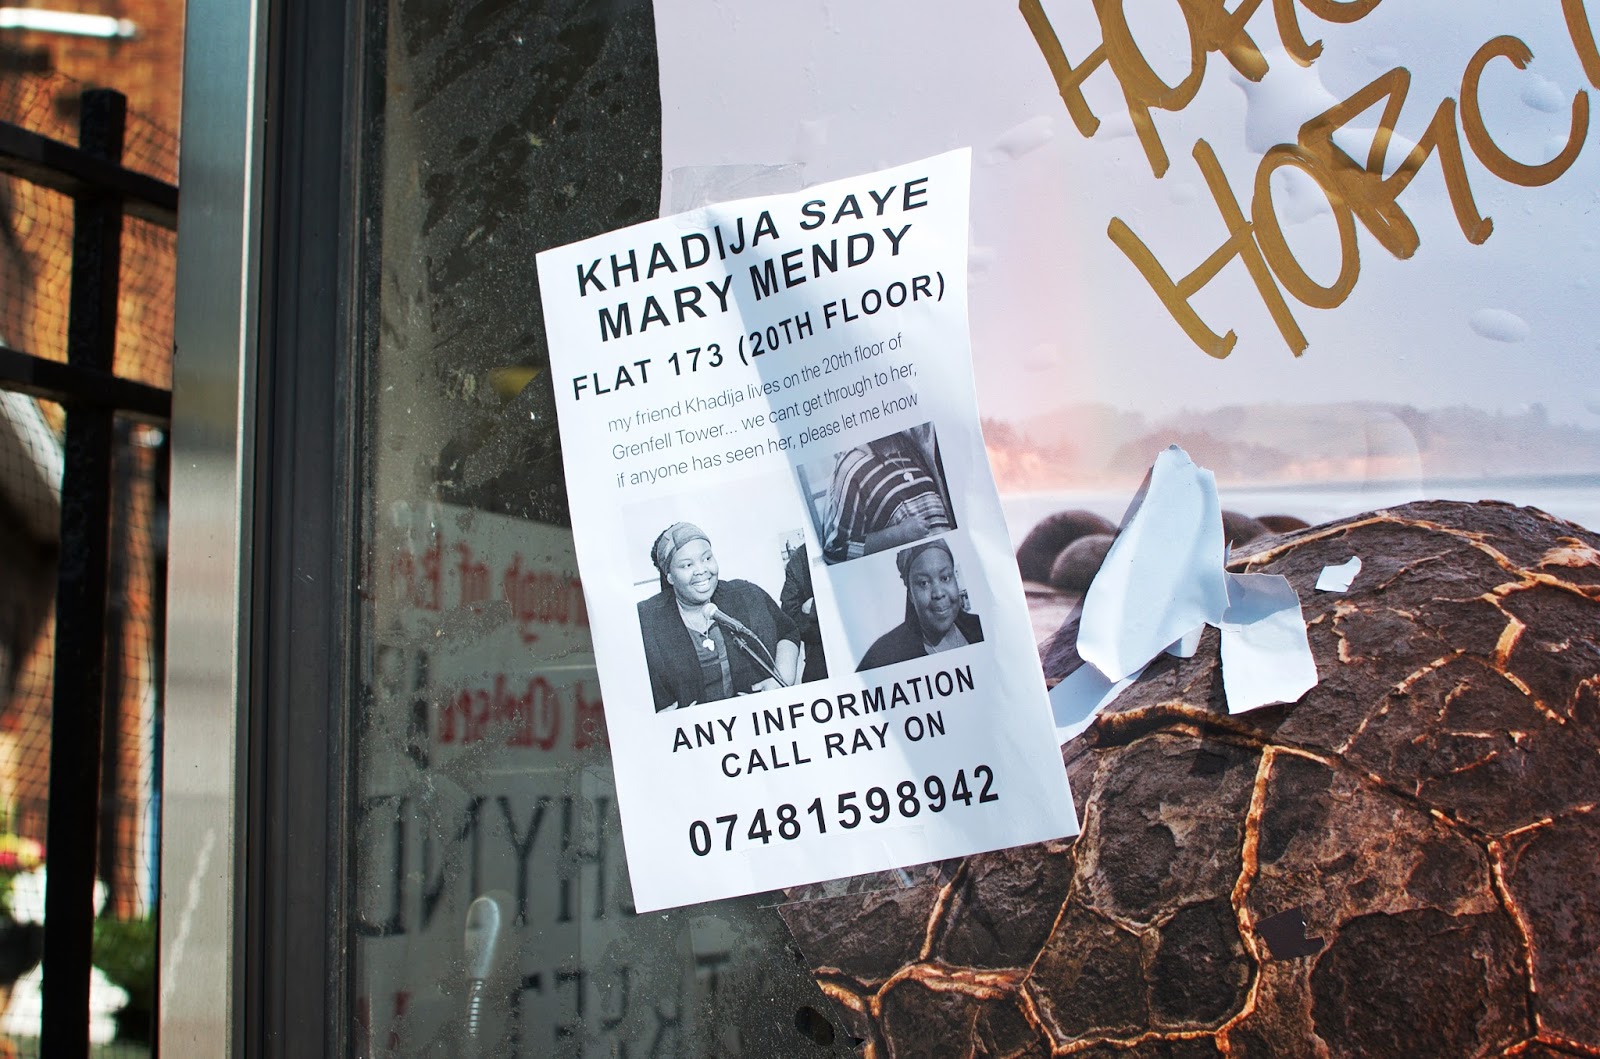 KHADIJA SAYE
MARY MENDY
FLAT 173 (20TH FLOOR)
my friend Khadija lives on the 20th floor of
Grenfell Tower... we cant get through to her,
if anyone has seen her, please let me know
ANY INFORMATION
CALL RAY ON
07481598942